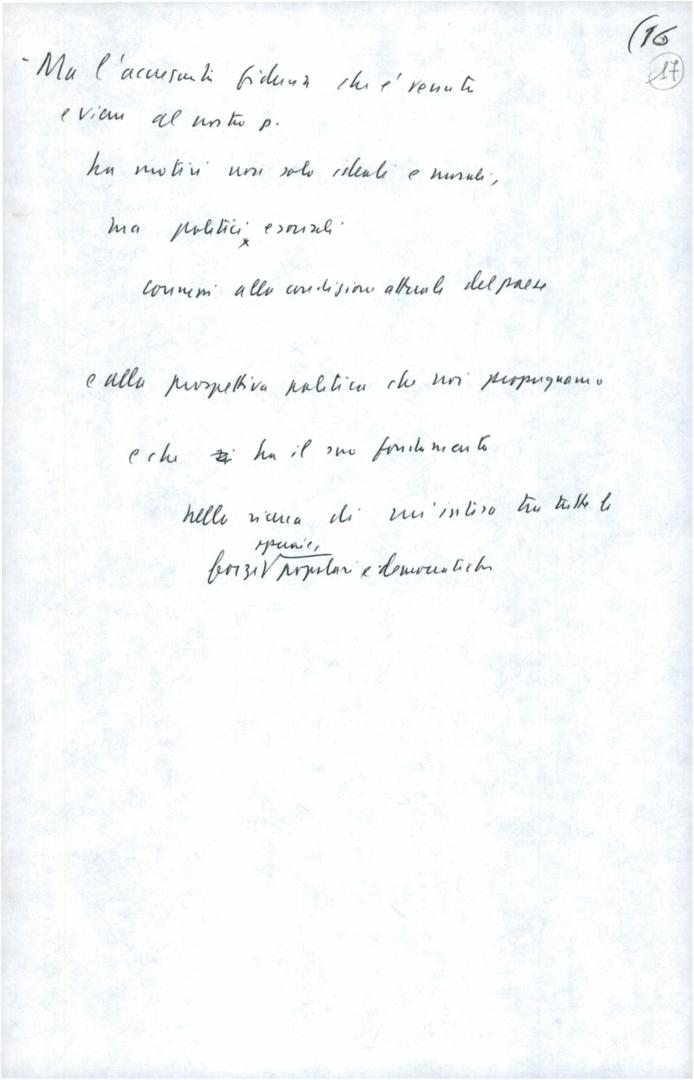 (16
17
- Ma l'accresciuta fiducia che è venuta
e viene al nostro p.
ha motivi non solo ideali e morali,
ma politici e sociali
connessi alla condizione attuale del paese
e alla prospettiva politica che noi propugnamo
e che ha il suo fondamento
nella ricerca di un'intesa tra tutte le
operaie,
forze popolari e democratiche